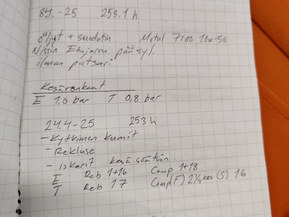 8.4.-25 253.1 h
öljyt + suodatin Motul 7100 10w50
ilman putsari
Kesärenkaat
E 1,0 bar T 0,8 bar
24.4-25 253h
- Kytkimen kumit
- Rekluse
- iskarit kesä säätöön
E Reb 1+16 Comp 1+18
T Reb 17 Comp(F) 2½kes (S) 16